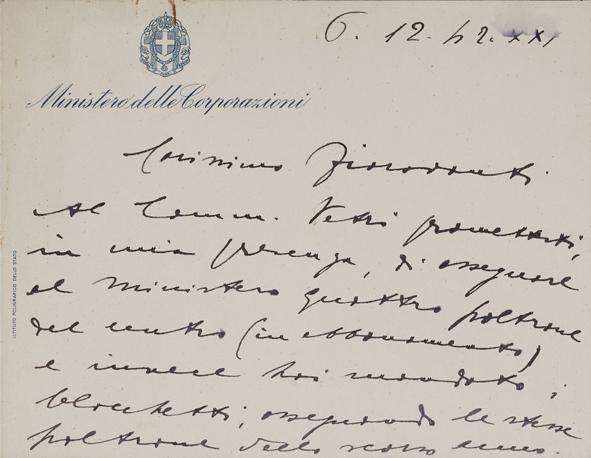 6. 12. 42. XXI
Ministero delle Corporazioni
Carissimo Fioravanti
Al Comm. Vetri promettesti,
in mia presenza, di assegnare
al Ministero quattro poltrone
del centro (in abbonamento)
e invece hai mandato i
blocchetti, assegnando le stesse
poltrone dello scorso anno.
ISTITUTO POLIGRAFICO DELLO STATO